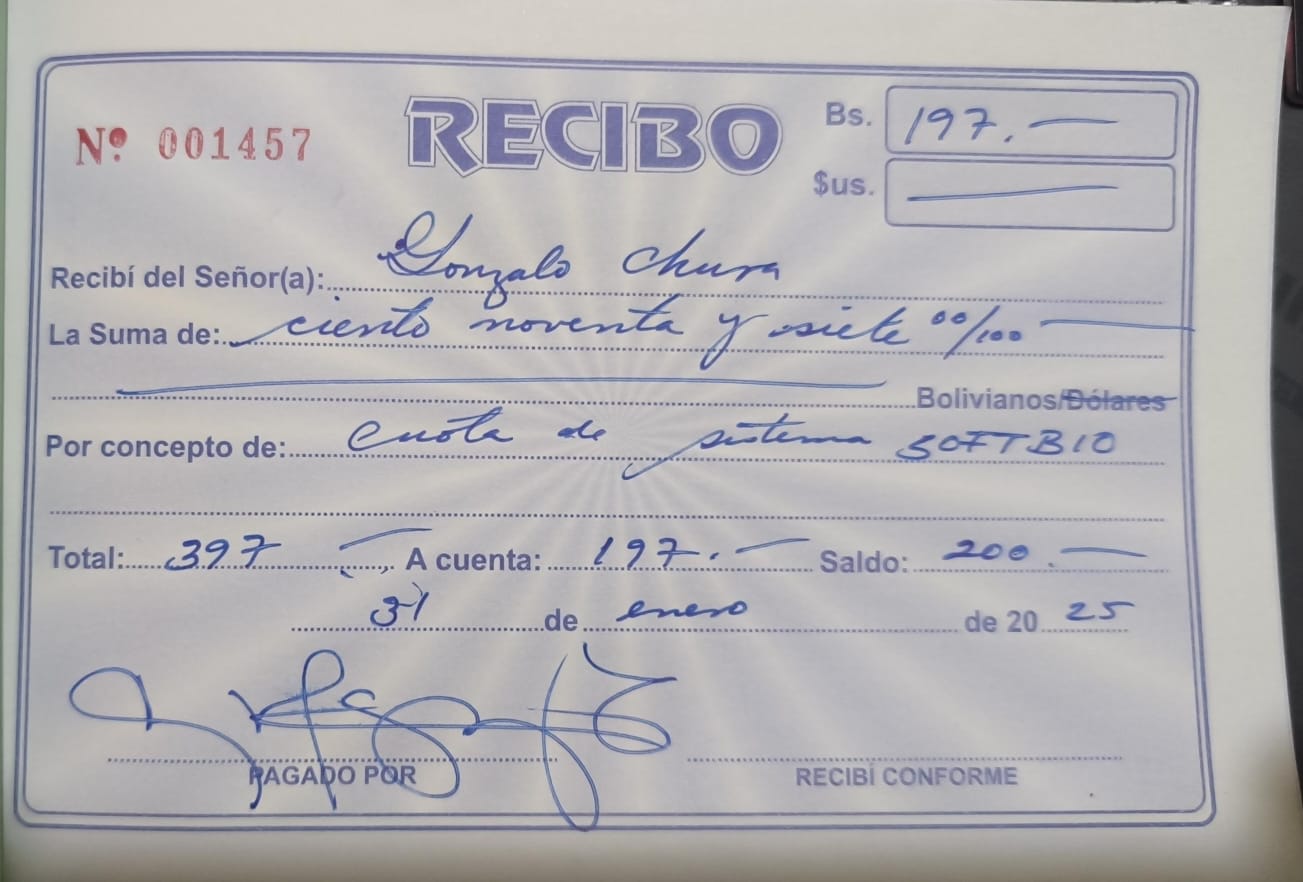 Nº 001457
RECIBO
Bs. 197.-
$us.
Recibí del Señor(a): Gonzalo Chura
La Suma de: ciento noventa y siete 00/100
Bolivianos/Dólares
Por concepto de: cuota de sistema SOFTBIO
Total: 397 A cuenta: 197.- Saldo: 200.-
31 de enero de 20 25
PAGADO POR RECIBÍ CONFORME